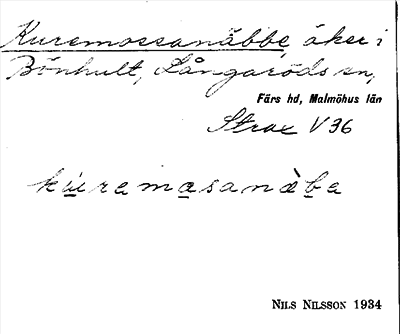 Kuremossanäbbe, åker i
Bönhult, Långaröds sn,
Färs hd, Malmöhus län
Strax V 36
kúremasanàbe
NILS NILSSON 1934